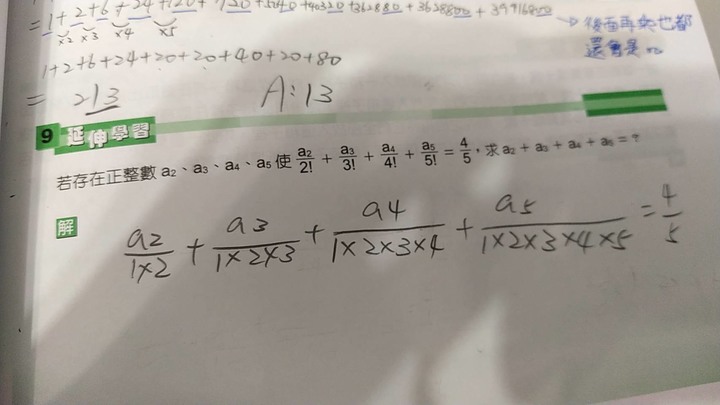 =1+2+6+24+120+720+5040+40320+362880+3628800+39916800
→後面再乘也都
還會是00
×2 ×3 ×4 ×5
1+2+6+24+20+20+40+20+80
= 213 A:13
9 延伸學習
若存在正整數 a₂、a₃、a₄、a₅ 使 a₂/2! + a₃/3! + a₄/4! + a₅/5! = 4/5,求 a₂+a₃+a₄+a₅=?
解
a2/1×2 + a3/1×2×3 + a4/1×2×3×4 + a5/1×2×3×4×5 = 4/5